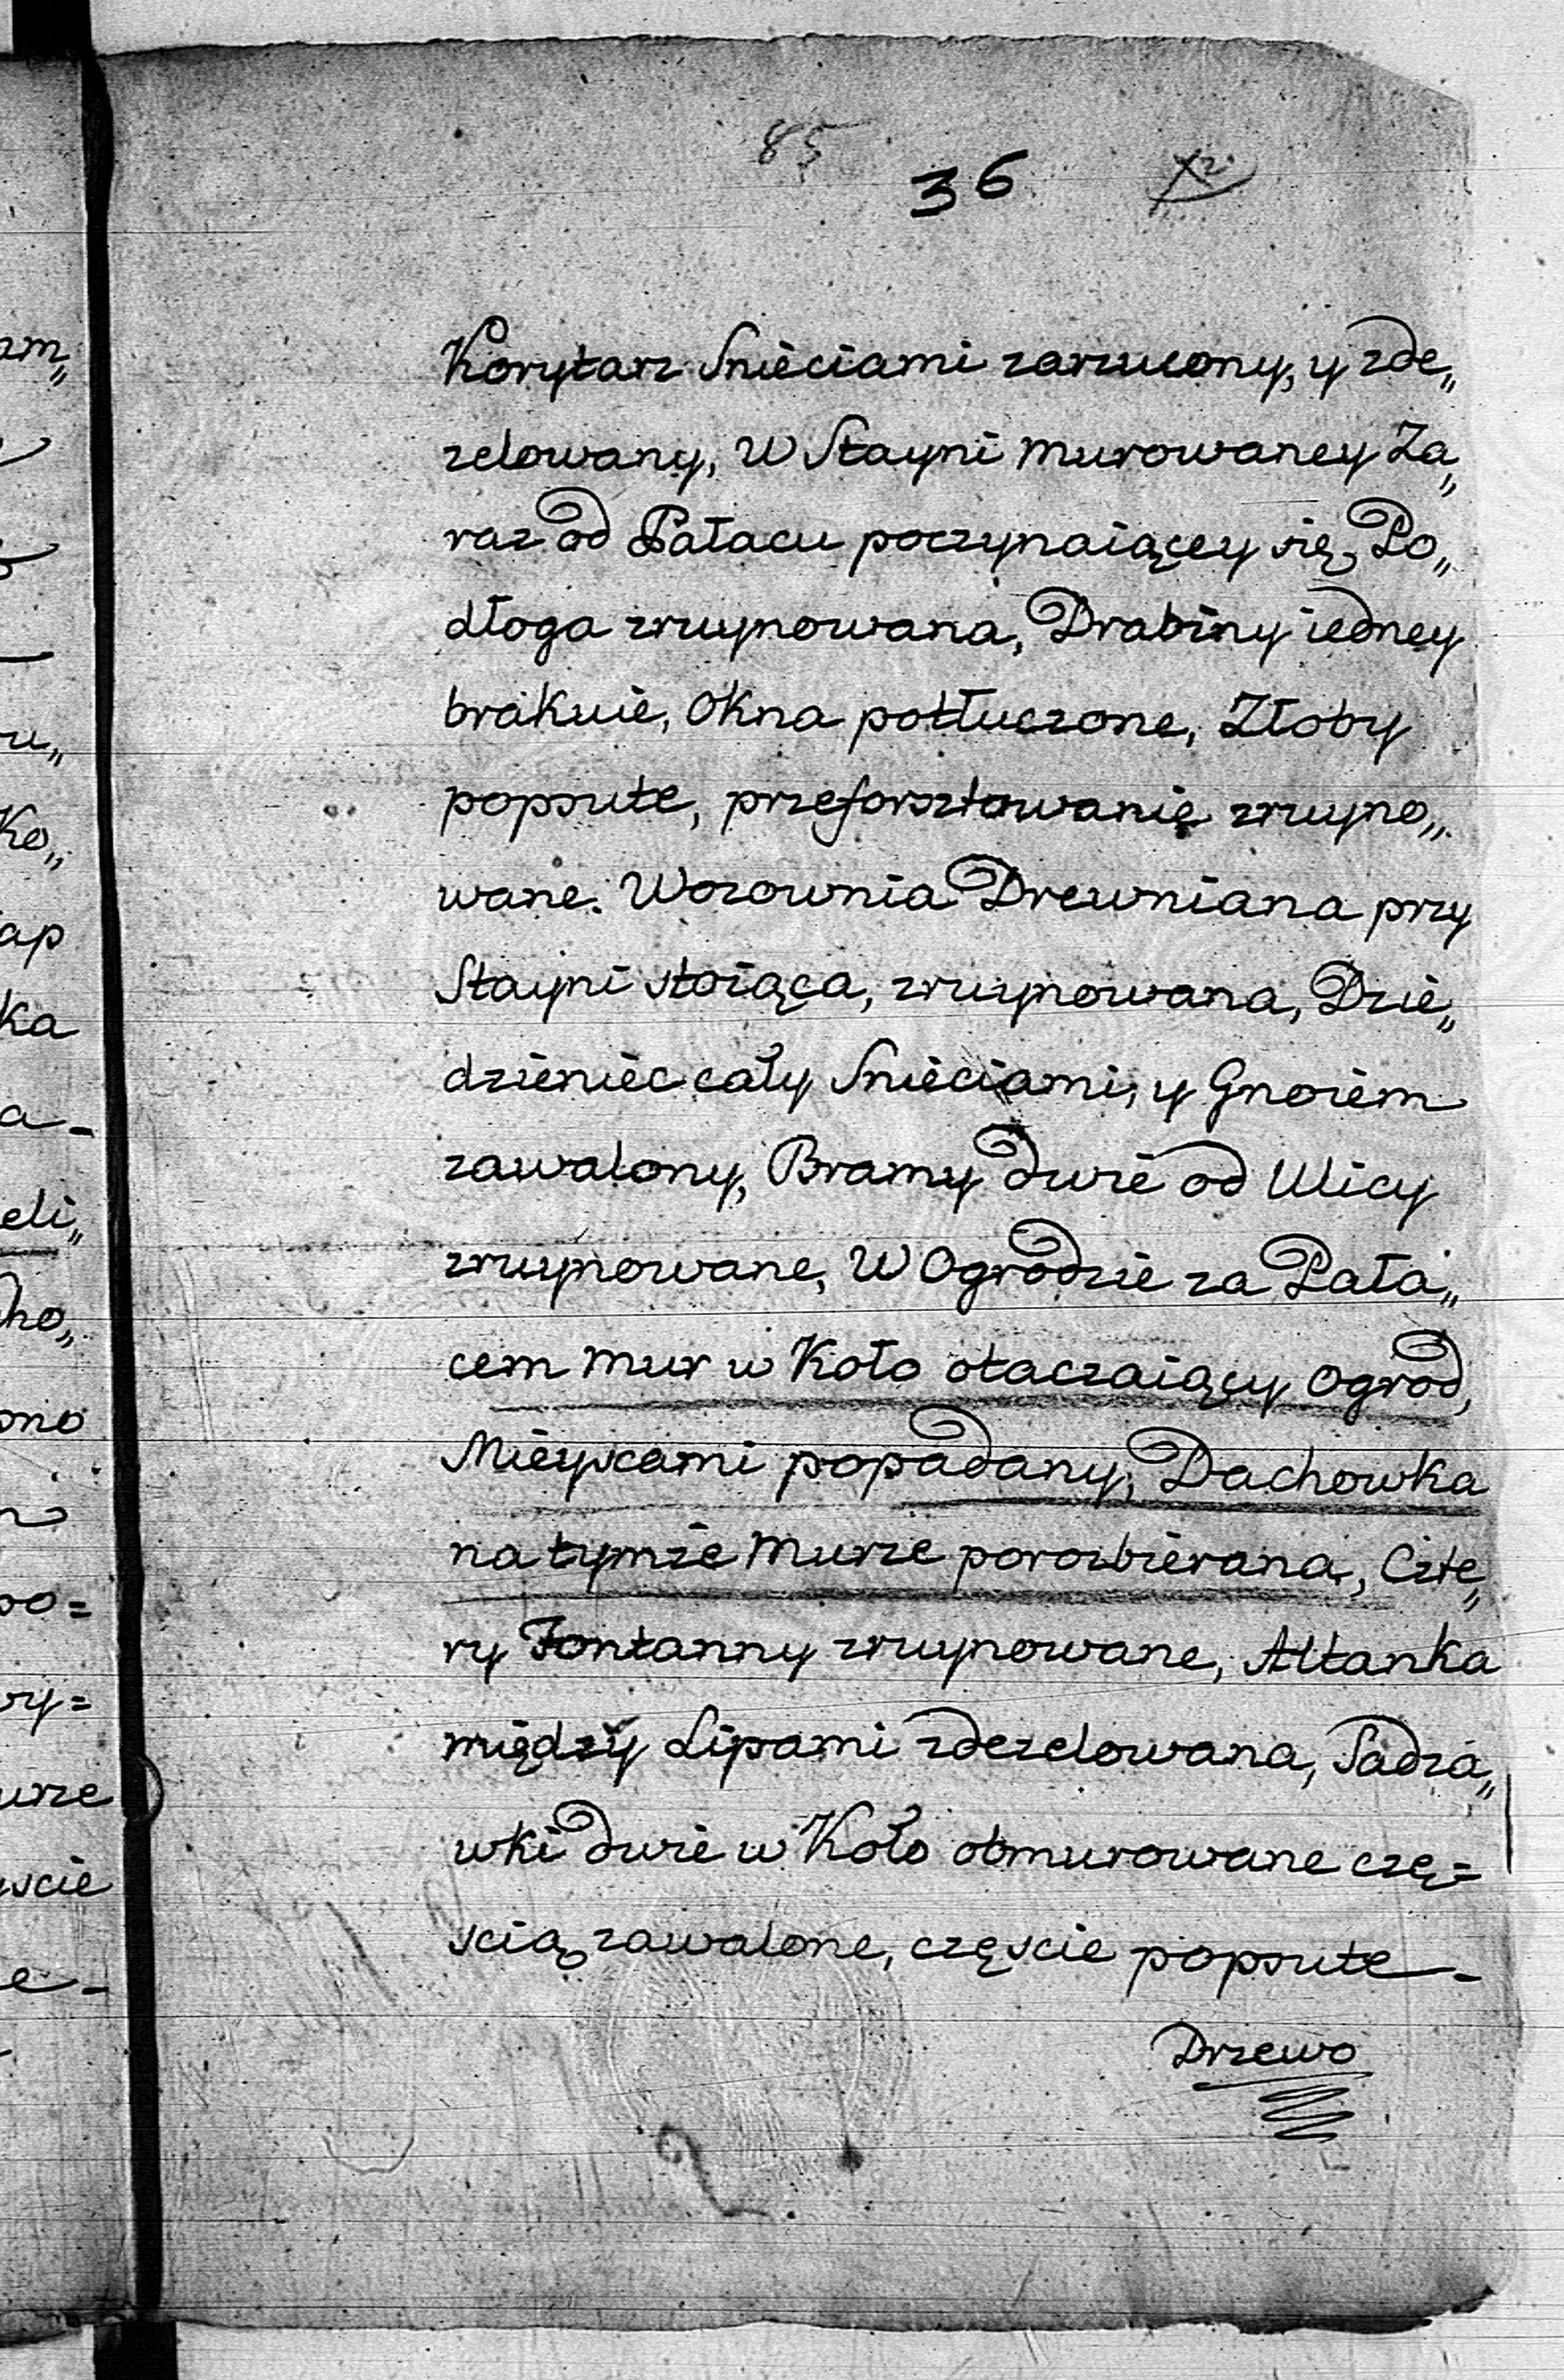 85
36
Korytarz Smieciami zarzucony, y zde„
zelowany, W Stayni murowaney Za„
raz od Pałacu poczynaiącey się, Po„
dłoga zruynowana, Drabiny iedney
brakuie, Okna potłuczone, Złoby
popsute, przeforsztowanie zruyno„
wane. Wozownia Drewniana przy
Stayni stoiąca, zruynowana, Dzie„
dzieniec cały Smieciami, y Gnoiem
zawalony, Bramy dwie od Ulicy
zruynowane, W Ogrodzie za Pała„
cem mur w Koło otaczaiący Ogrod,
Mieyscami popadany, Dachowka
na tymże Murze porozbierana, Czte„
ry Fontanny zruynowane, Altanka
między Lipami zdezelowana, Sadza„
wki dwie w Koło obmurowane czę=
scią zawalone, częscie popsute-
Drzewo
am„
ru„
Ko„
ap
ka
a-
eli„
ho„
ono
po=
ry=
urze
yscie
e-